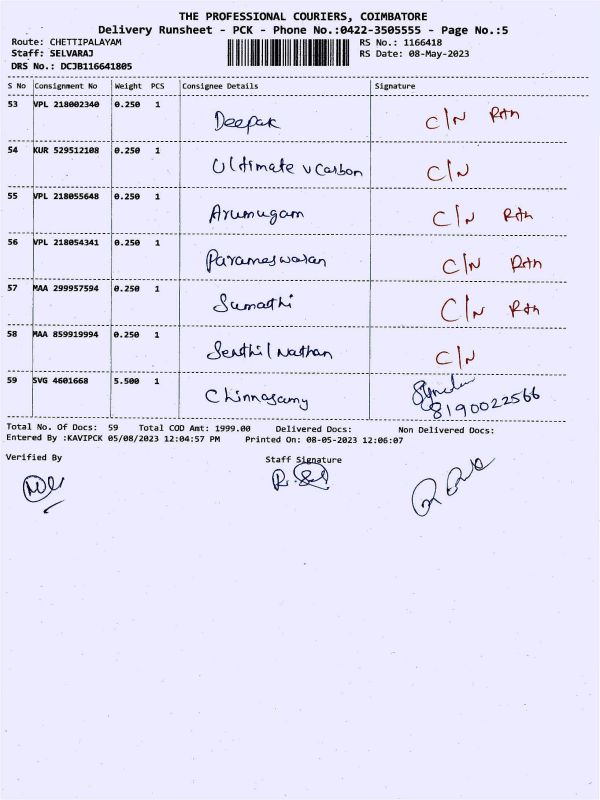 THE PROFESSIONAL COURIERS, COIMBATORE
Delivery Runsheet - PCK - Phone No.:0422-3505555 - Page No.:5
Route: CHETTIPALAYAM RS No.: 1166418
Staff: SELVARAJ RS Date: 08-May-2023
DRS No.: DCJB116641805
S No Consignment No Weight PCS Consignee Details Signature
53 VPL 218002340 0.250 1 Deepak C/N Rtn
54 KUR 529512108 0.250 1 Ultimate v Carbon C/N
55 VPL 218055648 0.250 1 Arumugam C/N Rtn
56 VPL 218054341 0.250 1 Parameswaran C/N Rtn
57 MAA 299957594 0.250 1 Sumathi C/N Rtn
58 MAA 859919994 0.250 1 Senthil Nathan C/N
59 SVG 4601668 5.500 1 Chinnasamy 8190022566
Total No. Of Docs: 59 Total COD Amt: 1999.00 Delivered Docs: Non Delivered Docs:
Entered By :KAVIPCK 05/08/2023 12:04:57 PM Printed On: 08-05-2023 12:06:07
Verified By Staff Signature